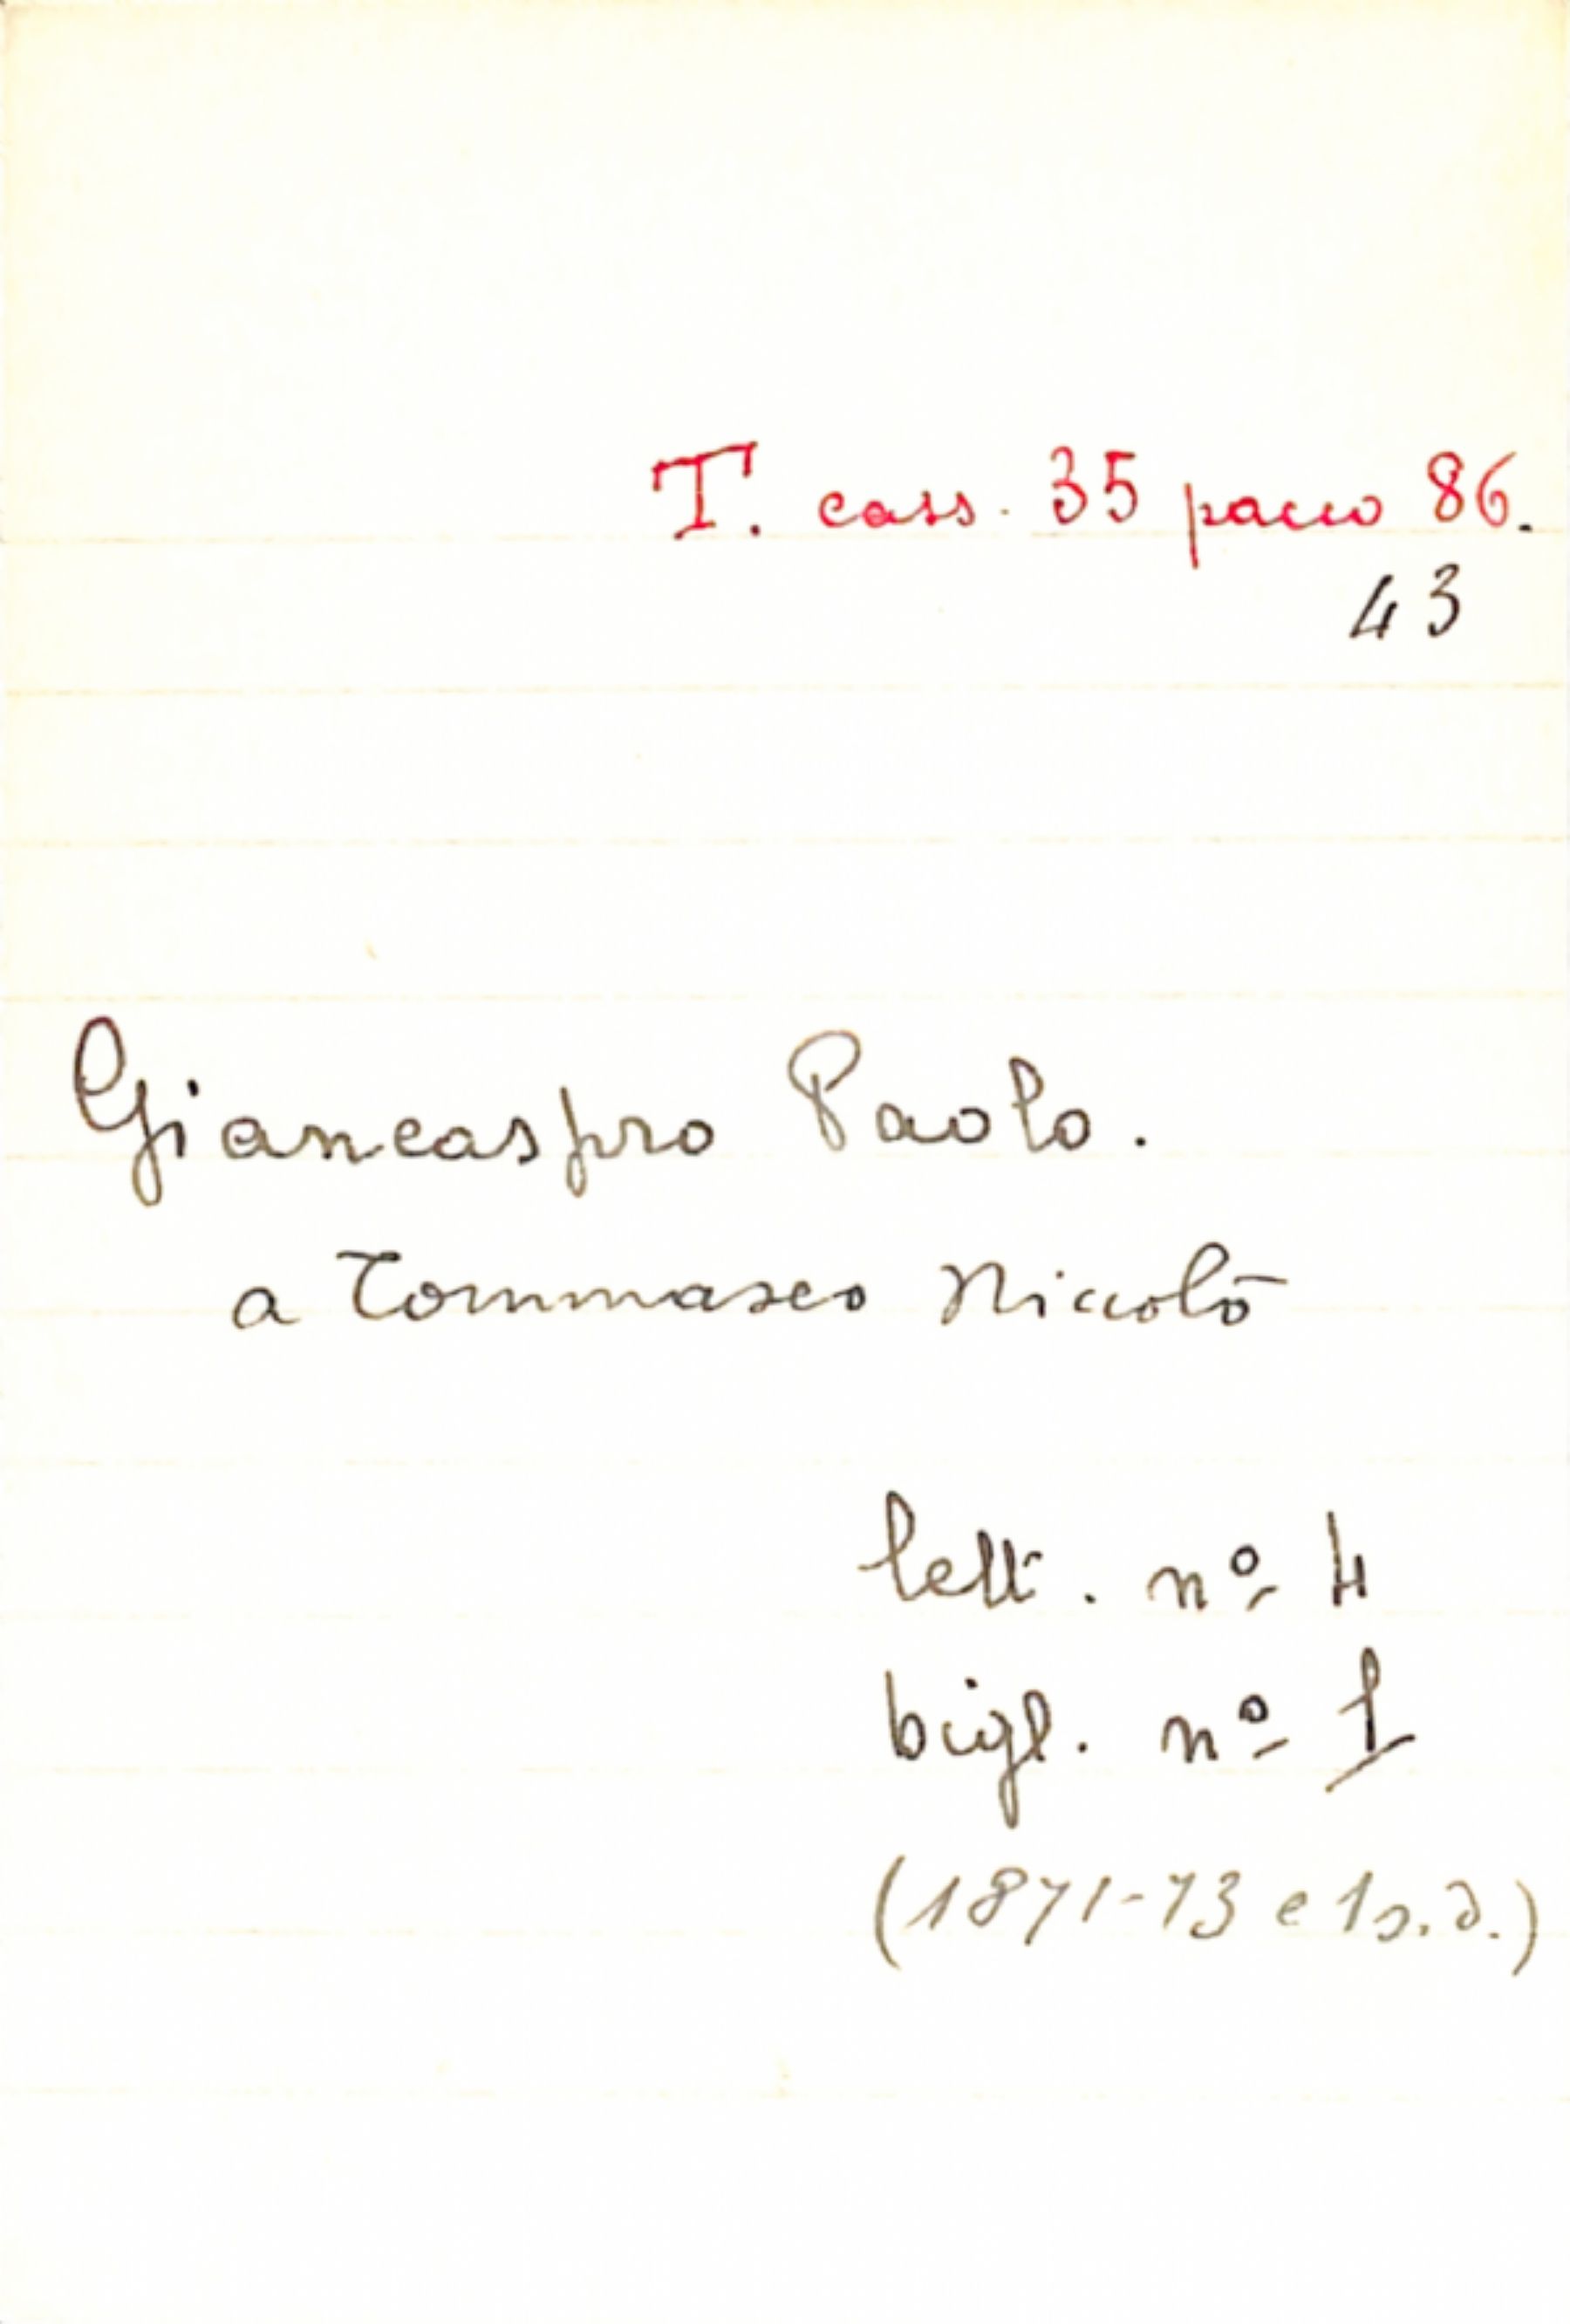 T. cass. 35 pacco 86.
43
Giancaspro Paolo.
a Tommaseo Niccolò
lett. nº 4
bigl. nº 1
(1871-73 e 1 s.d.)